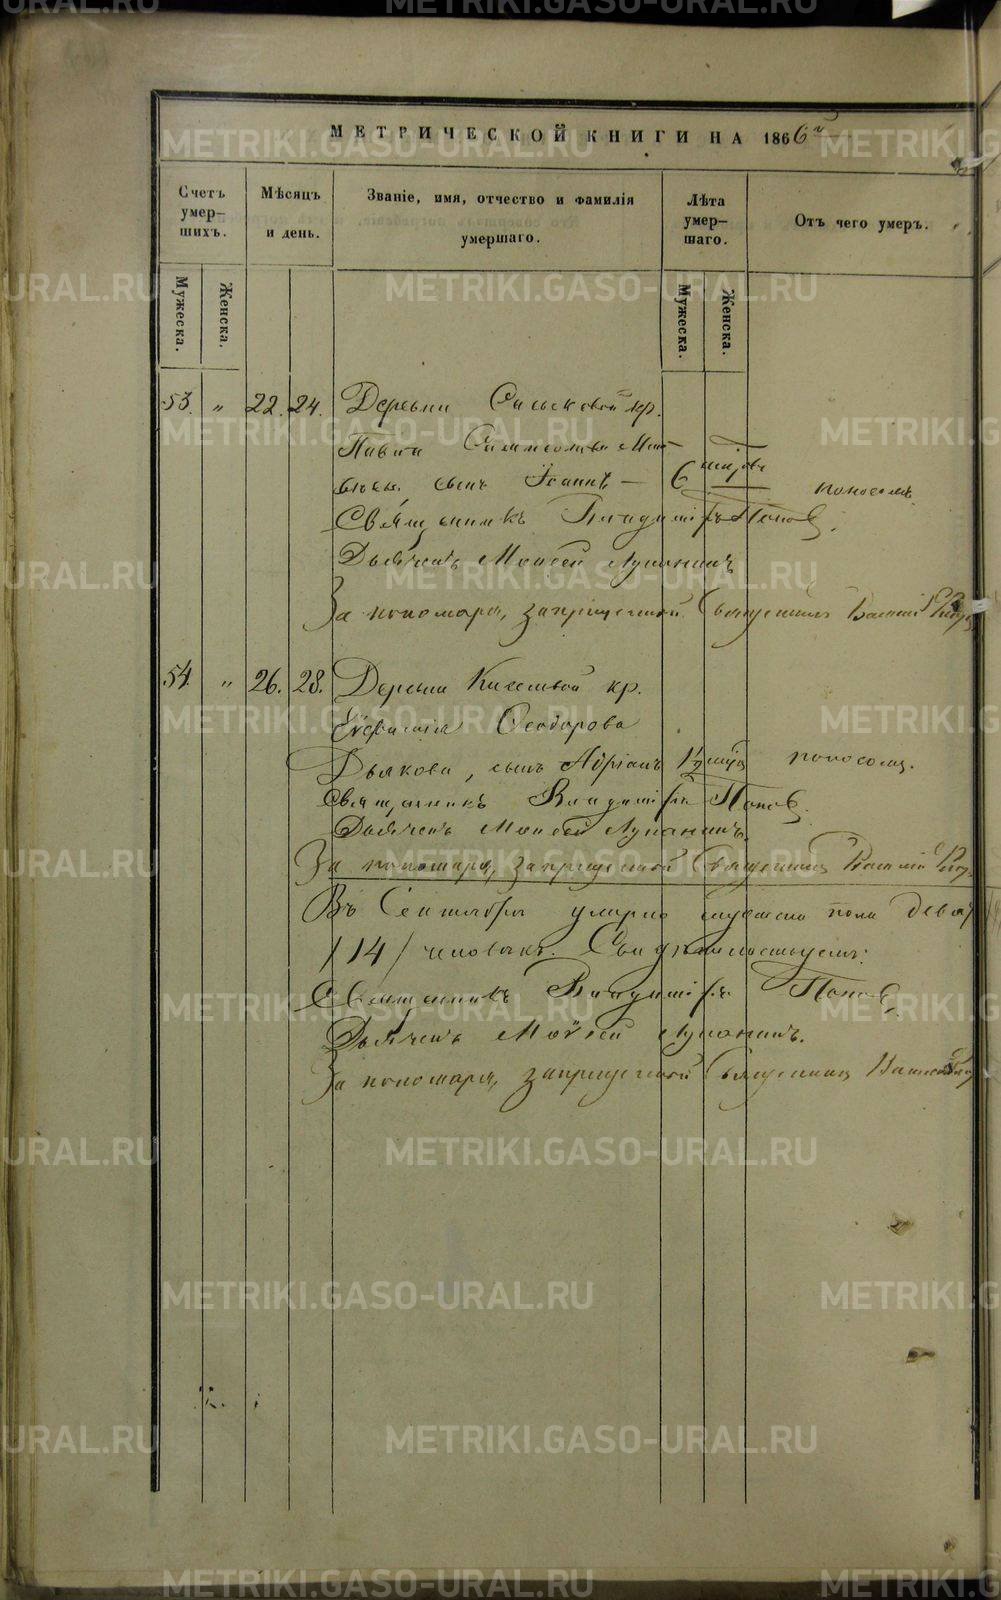 METRIKI.GASO-URAL.RU
МЕТРИЧЕСКОЙ КНИГИ НА 1866
Счетъ умер- шихъ.
Мѣсяцъ и день.
Званіе, имя, отчество и фамилія умершаго.
Лѣта умер- шаго.
Отъ чего умеръ.
Мужеска.
Женска.
Мужеска.
Женска.
53. „ 22. 24. Деревни кр.
Павла
сынъ Іоаннъ — 6 поносомъ
Священникъ Владиміръ Поповъ.
Дьячекъ Моисей Лупанинъ
За пономаря, запрещенной Священникъ Василій
54. „ 26. 28. Деревни кр.
Ѳеодорова
Дьякова, сынъ Адріанъ поносомъ.
Священникъ Владиміръ Поповъ.
Дьячекъ Моисей Лупанинъ.
За пономаря, запрещенной Священникъ Василій
Въ Сентябрѣ умерло мужеска пола
/14/ человѣкъ. Свидѣтельствуемъ:
Священникъ Владиміръ Поповъ.
Дьячекъ Мойсей Лупанинъ.
За пономаря, запрещенной Священникъ